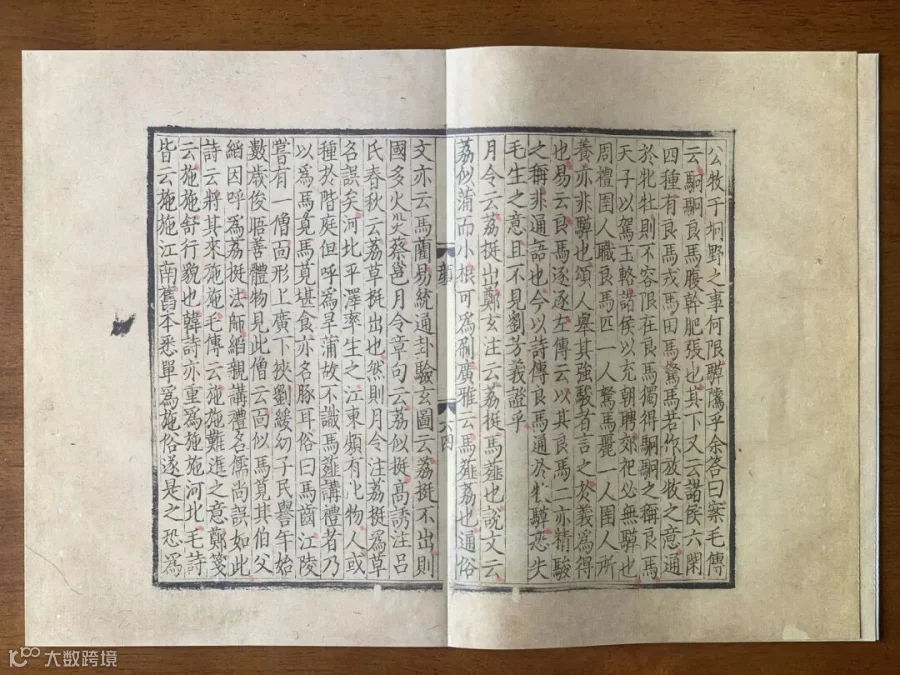 公牧于坰野之事何限騲騭乎余答曰案毛傳
云駉駉良馬腹幹肥張也其下又云諸侯六閑
四種有良馬戎馬田馬駑馬若作放牧之意通
於牝牡則不容限在良馬獨得駉駉之稱良馬
天子以駕玉輅諸侯以充朝聘郊祀必無騲也
周禮圉人職良馬匹一人駑馬麗一人圉人所
養亦非騲也頌人舉其強駿者言之於義爲得
也易云良馬逐逐左傳云以其良馬二亦精駿
之稱非通語也今以詩傳良馬通於牧騲恐失
毛生之意且不見劉芳義證乎
月令云荔挺出鄭玄注云荔挺馬薤也說文云
荔似蒲而小根可爲刷廣雅云馬薤荔也通俗
文亦云馬藺易統通卦驗玄圖云荔挺不出則
國多火災蔡邕月令章句云荔似挺高誘注呂
氏春秋云荔草挺出也然則月令注荔挺爲草
名誤矣河北平澤率生之江東頗有此物人或
種於階庭但呼爲旱蒲故不識馬薤講禮者乃
以爲馬莧馬莧堪食亦名豚耳俗曰馬齒江陵
嘗有一僧面形上廣下狹劉緩幼子民譽年始
數歲俊晤善體物見此僧云面似馬莧其伯父
縚因呼爲荔挺法師縚親講禮名儒尚誤如此
詩云將其來施施毛傳云施施難進之意鄭箋
云施施舒行貌也韓詩亦重爲施施河北毛詩
皆云施施江南舊本悉單爲施俗遂是之恐爲
大数跨境